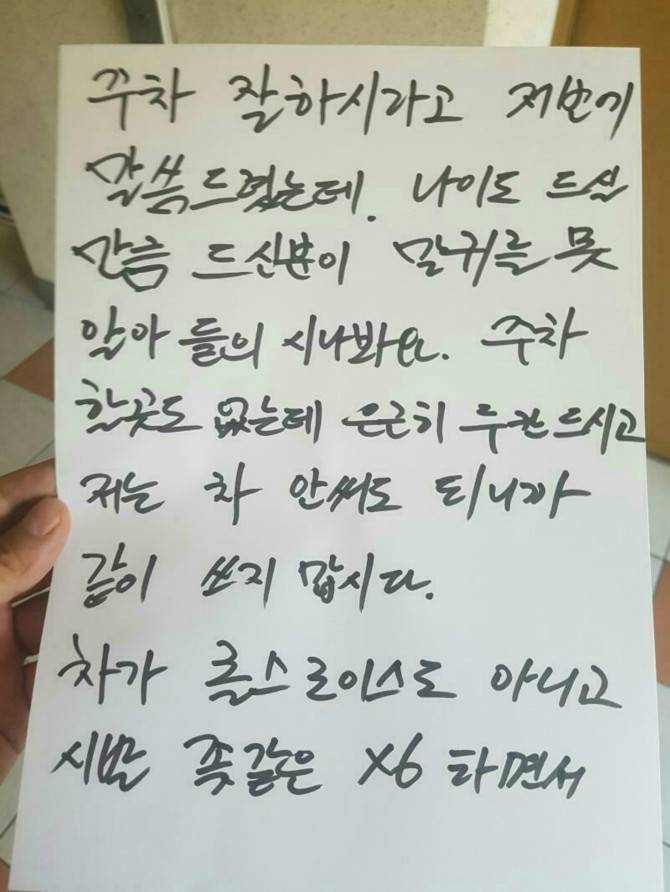 주차 잘하시라고 저번에
말씀드렸는데. 나이도 드실
만큼 드신분이 말귀를 못
알아 들의 시나봐요. 주차
할곳도 없는데 은근히 두칸드시고
저는 차 안써도 되니까
같이 쓰지 맙시다.
차가 롤스로이스도 아니고
시발 좃같은 X6 타면서